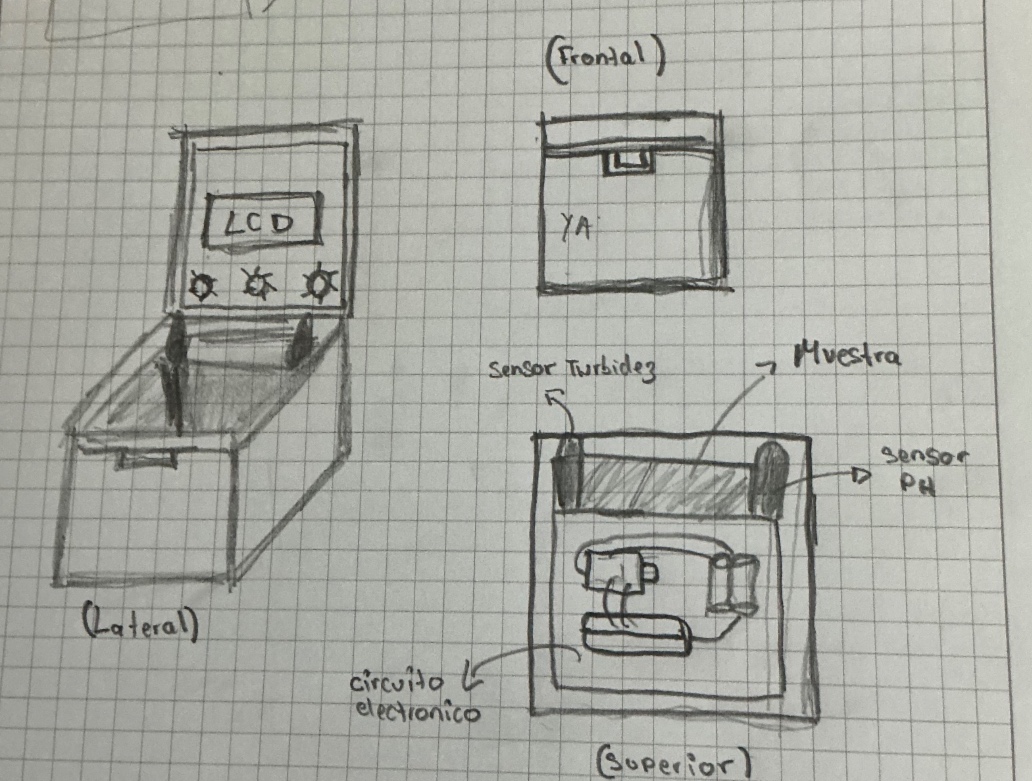 (Frontal)
LCD
YA
sensor Turbidez
Muestra
sensor
PH
(Lateral)
circuito
electronico
(Superior)